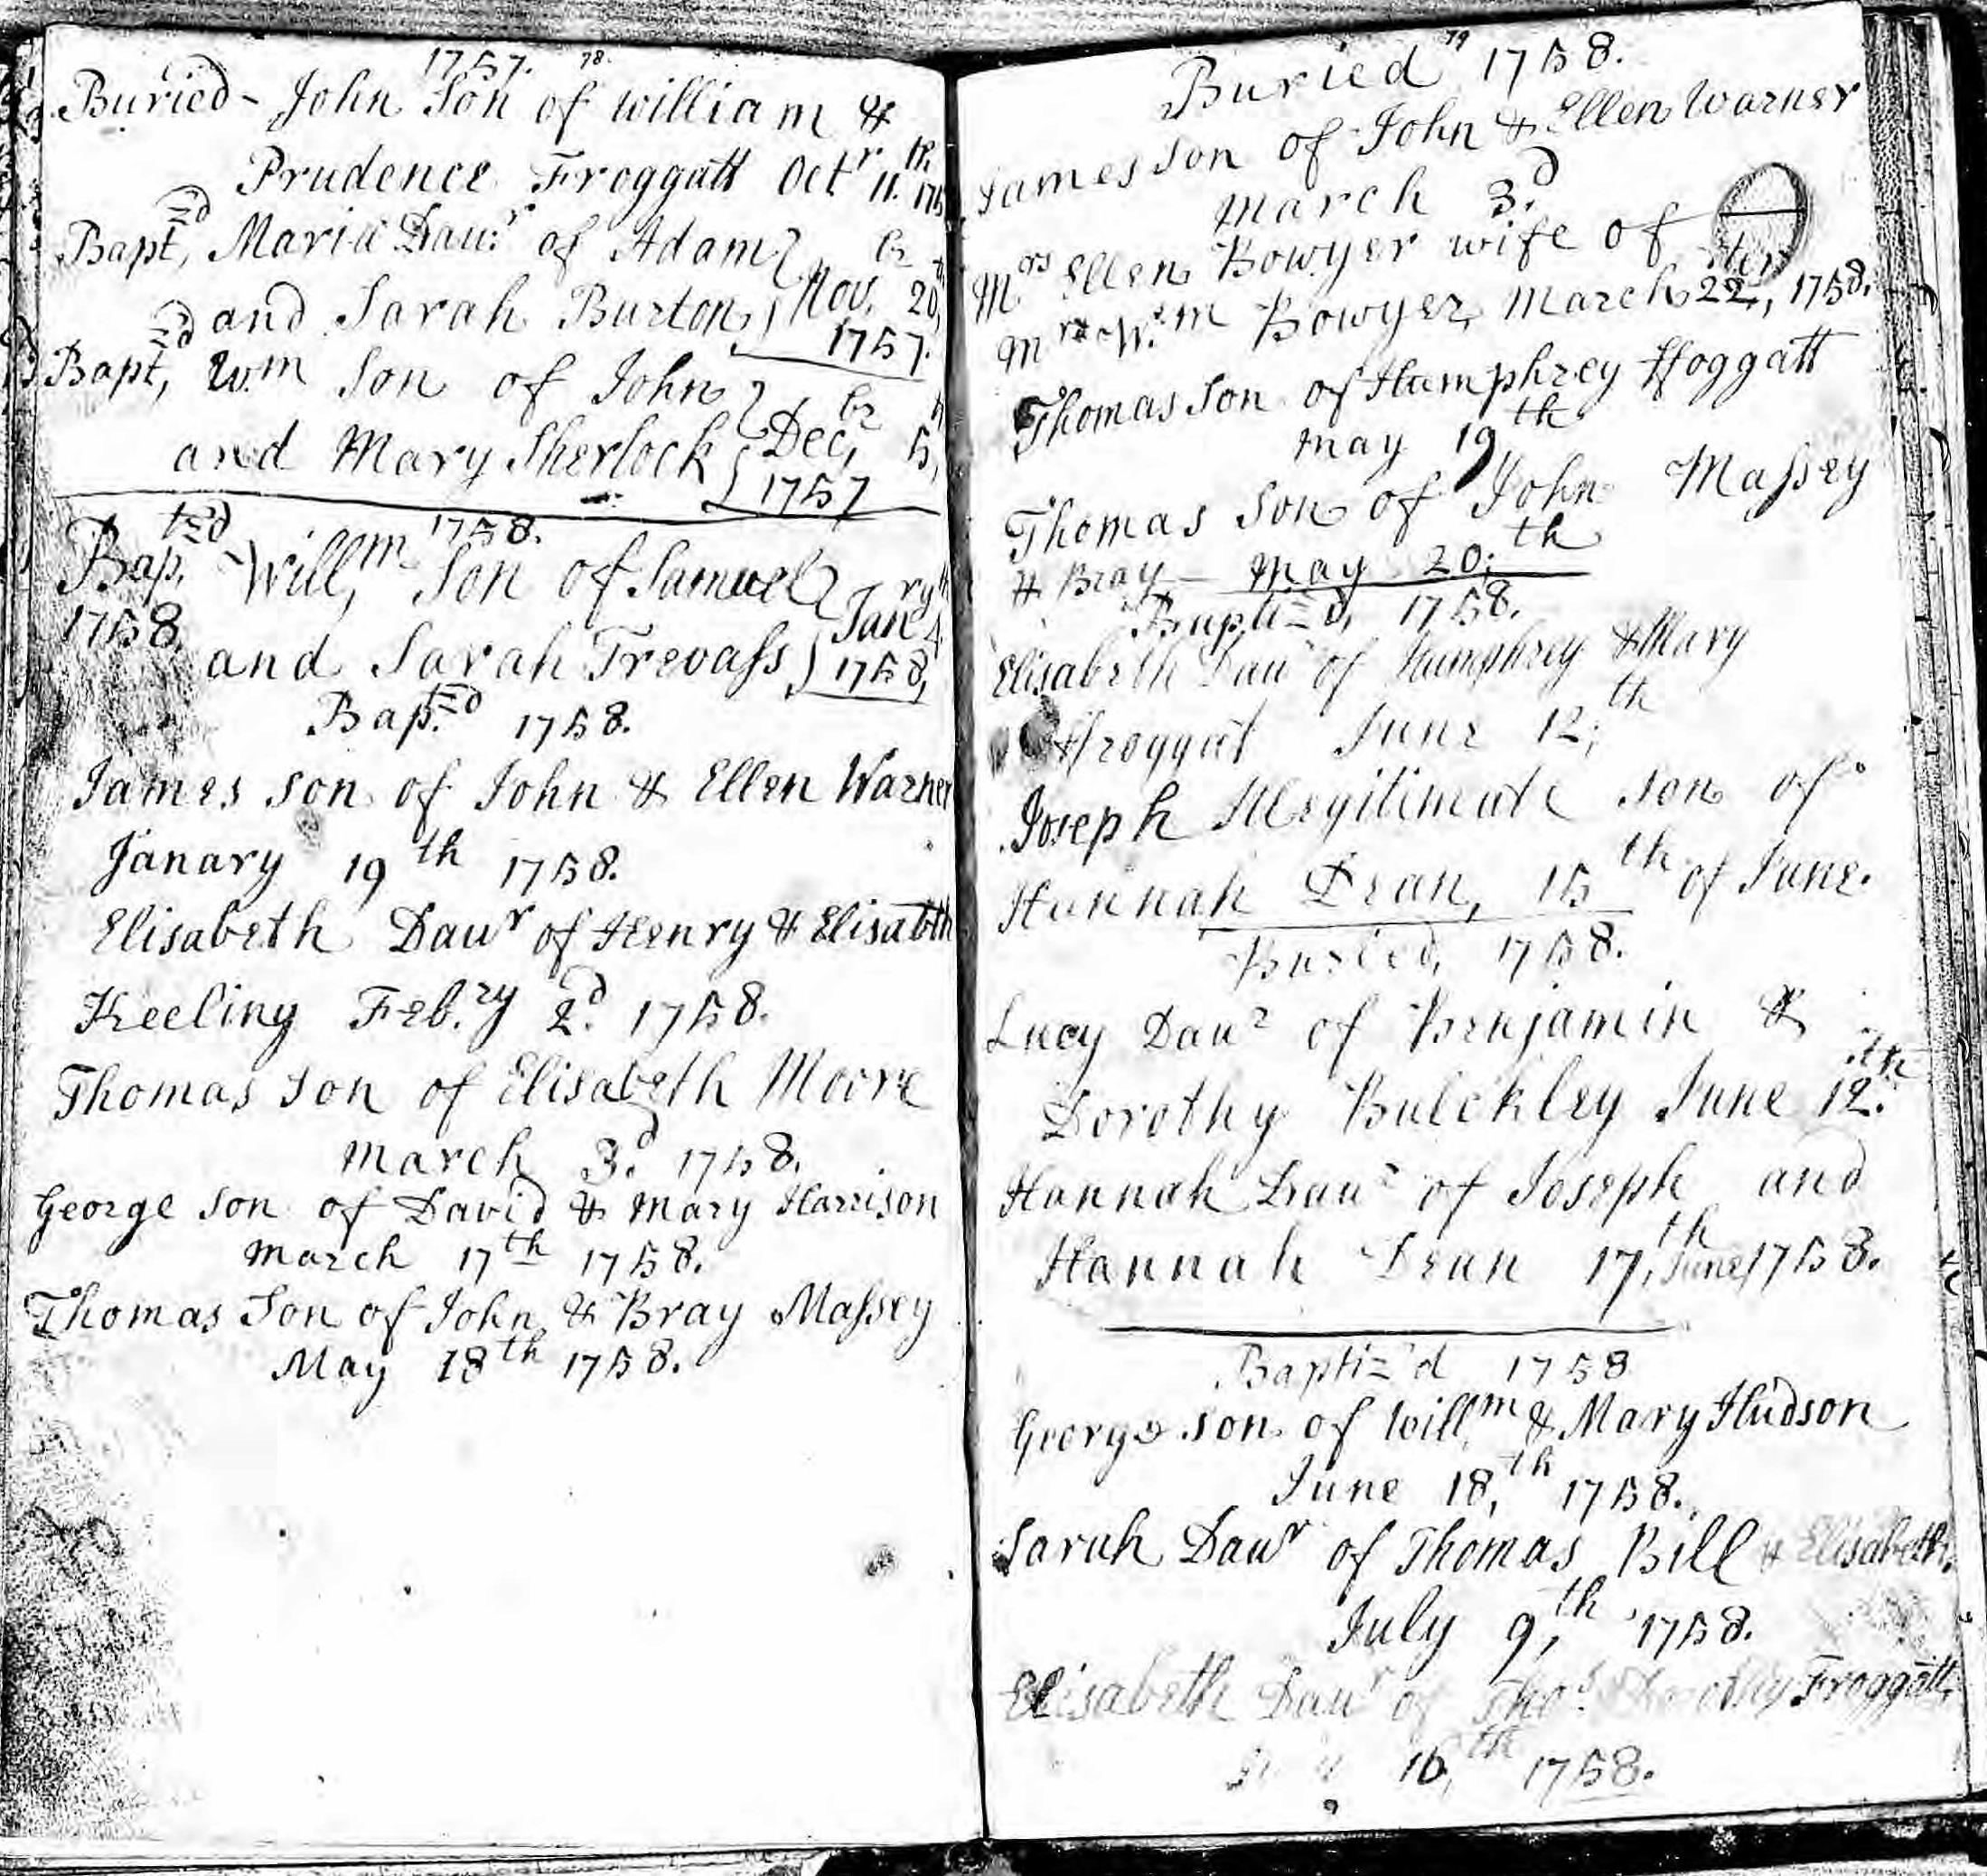 1757. 78.
Buried - John Son of William &
Prudence Froggatt Octr 11th 175
Baptzd, Maria Dawr of Adam
and Sarah Burton Novbr 20,
1757.
Baptzd, Wm Son of John
and Mary Sherlock Decbr 5,
1757
1758.
Baptzd Willm, Son of Samuel
1758,
and Sarah Trevass Janry 4
1758,
Baptzd 1758.
James son of John & Ellen Warner
Janary 19th 1758.
Elisabeth Dawr of Henry & Elisabth
Keeling Feb.ry 2d. 1758.
Thomas Son of Elisabeth Moore
March 3d. 1758.
George Son of David & Mary Harrison
March 17th 1758.
Thomas Son of John & Bray Massey
May 18th 1758.
79
Buried 1758.
James son of John & Ellen Warner
March 3d.
Mrs Ellen Bowyer wife of
Mr Wm Bowyer, March 22, 1758.
Thomas Son of Humphrey ffoggatt
May 19th
Thomas Son of John Massey
& Bray May 20th
Baptiz'd, 1758.
Elisabeth Dawr of Humphrey & Mary
ffroggat June 12,th
Joseph Illegitimate son of
Hannah Dean, 15th of June.
Buried, 1758.
Lucy Dawr of Benjamin &
Dorothy Bulckley June 12.th
Hannah Dawr of Joseph and
Hannah Dean 17,th June, 1758.
Baptiz'd 1758
George son of Willm & Mary Hudson
June 18,th 1758.
Sarah Dawr of Thomas Bill & Elisabeth,
July 9,th 1758.
Elisabeth Dawr of Thos Dorothy Froggatt,
16,th 1758.